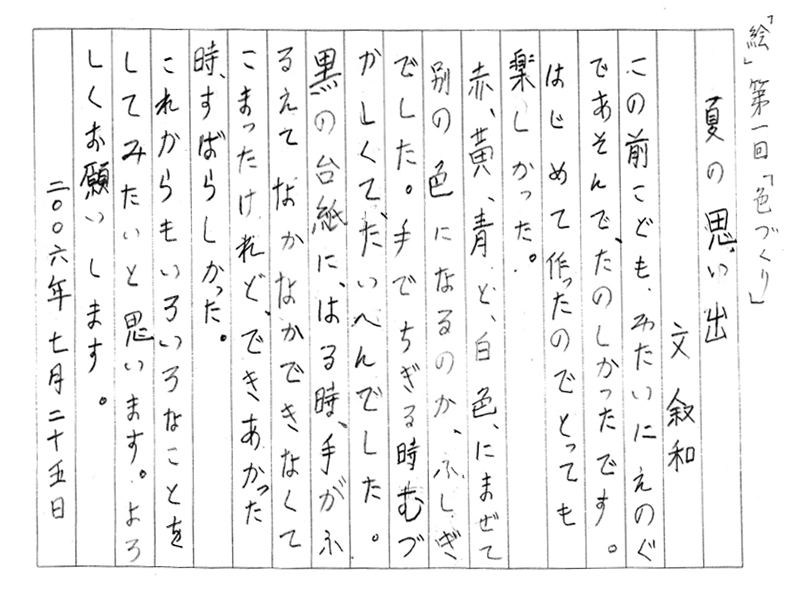 「絵」第一回「色づくり」
夏の思い出
文 叙和
この前こども、みたいにえのぐ
であそんで、たのしかったです。
はじめて作ったのでとっても
楽しかった。
赤、黄、青と、白色、にまぜて
別の色になるのか、ふしぎ
でした。手でちぎる時むづ
かしくてだいへんでした。
黒の台紙に、はる時、手がふ
るえてなかなかできなくて
こまったけれど、できあがった
時、すばらしかった。
これからもいろいろなことを
してみたいと思います。よろ
しくお願いします。
二〇〇六年七月二十五日